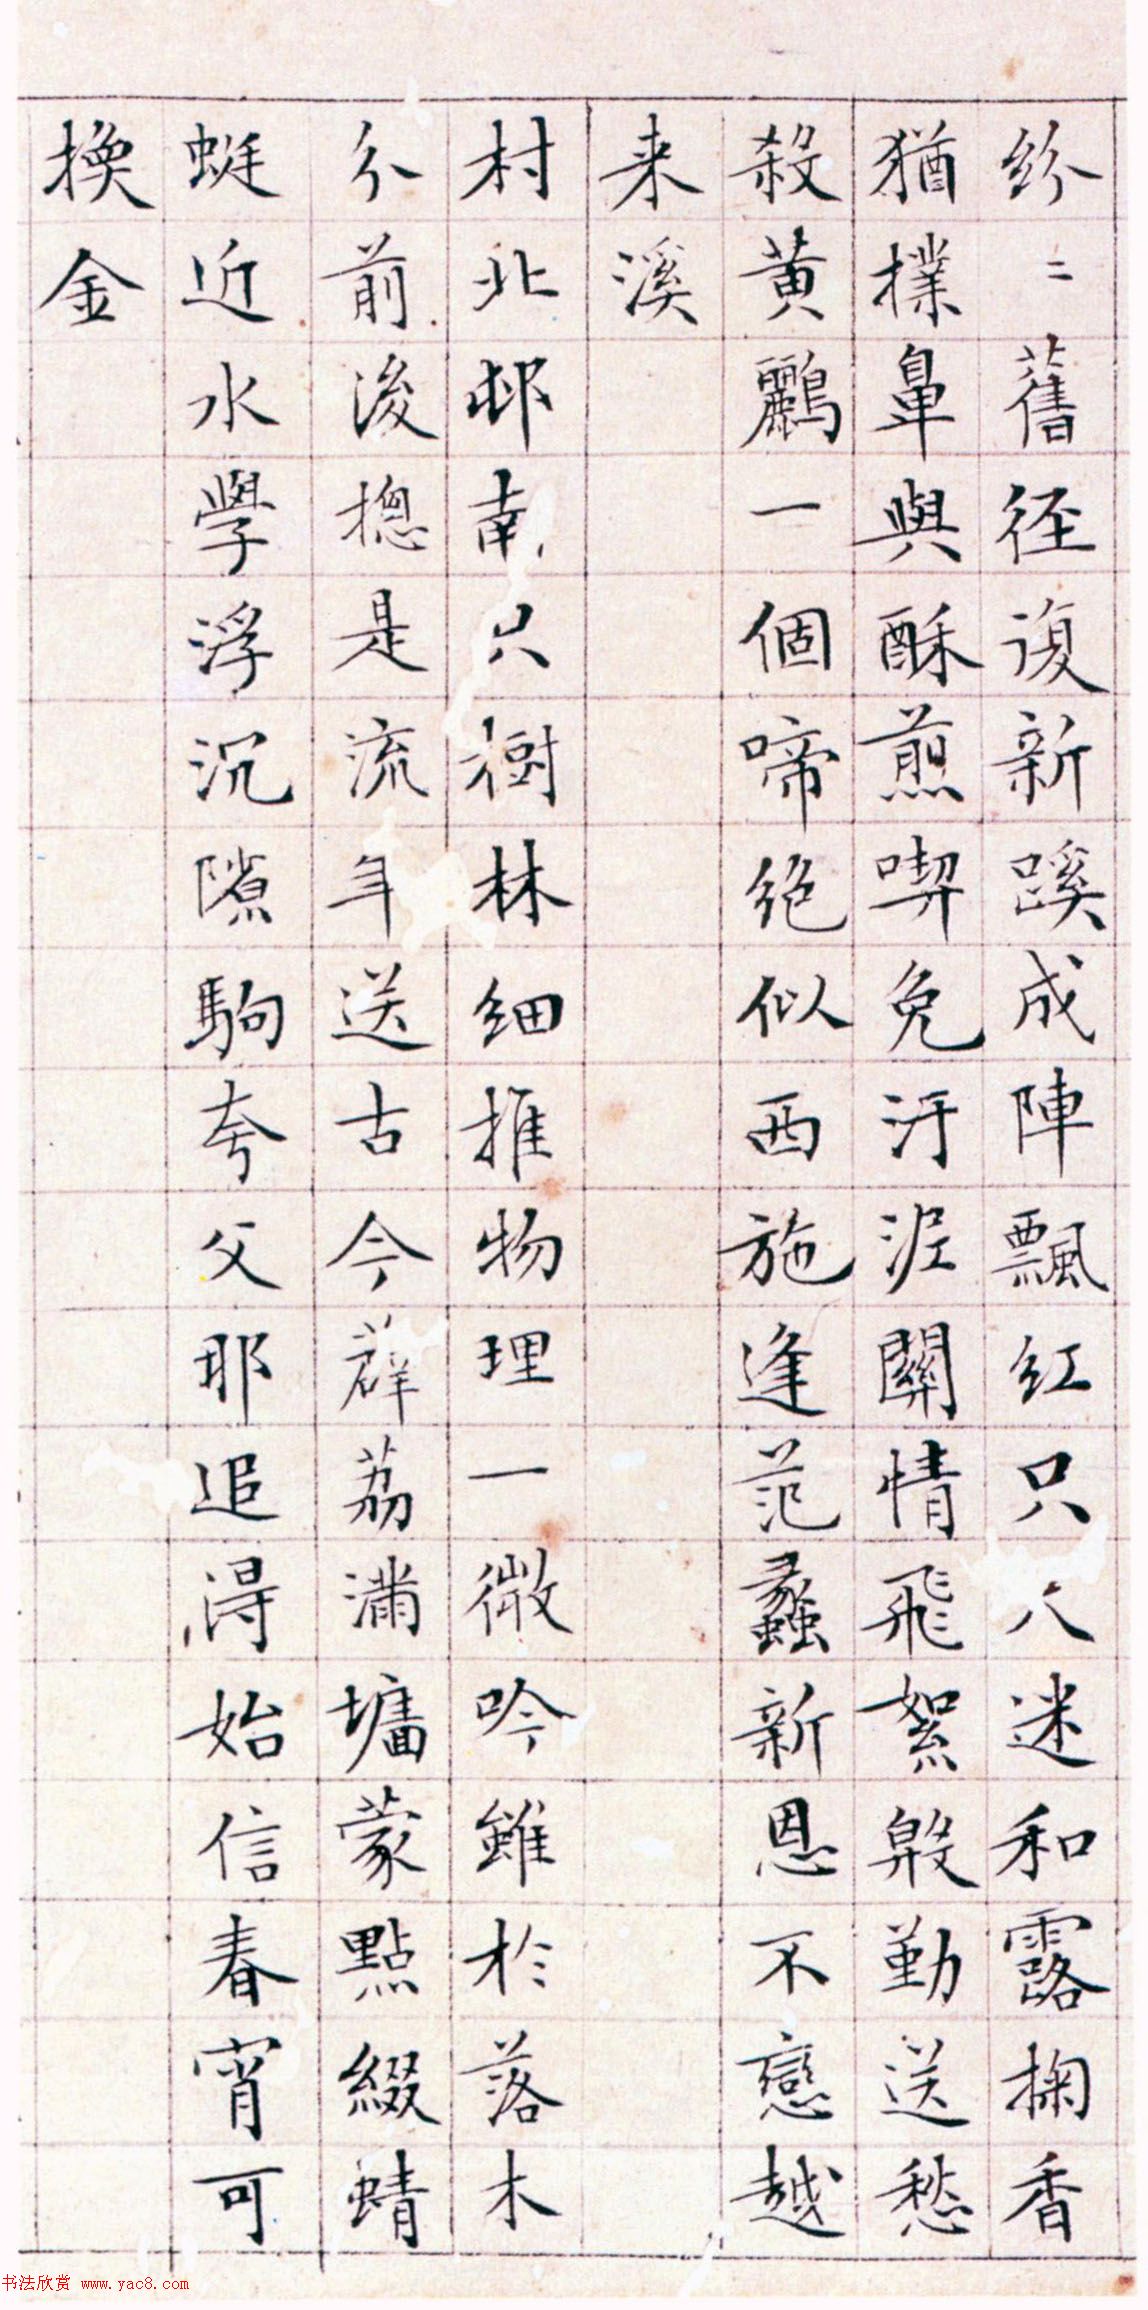 紛〻舊徑復新蹊成陣飄紅只八迷和露掬香
猶撲鼻與酥煎喫免汙泥關情飛絮殷勤送愁
殺黃鸝一個啼絕似西施逢范蠡新恩不戀越
来溪
村北邨南只樹林細推物理一微吟雖於落木
分前後揔是流年送古今薜荔滿墉蒙點綴蜻
蜓近水學浮沉隙駒夸父那追得始信春宵可
換金
书法欣赏 www.yac8.com